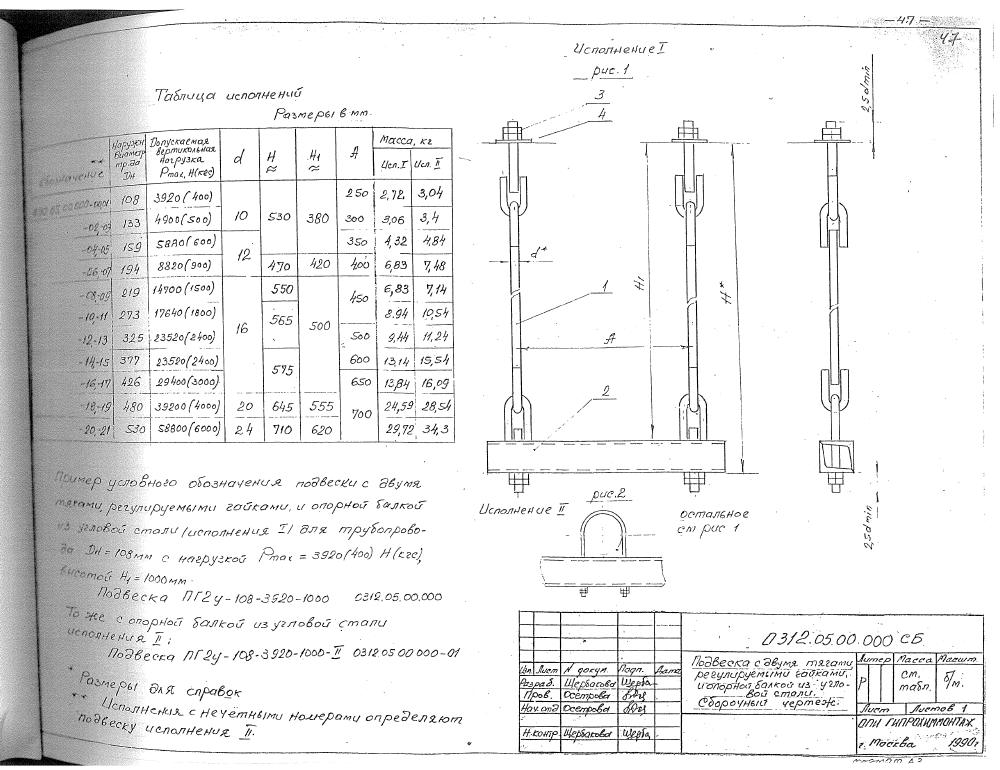 — 47 —
47
Исполнение I
рис. 1
Таблица исполнений
Размеры в мм.
** Обозначение | Наружн. диаметр тр-да Dн | Допускаемая вертикальная нагрузка Pmax, Н(кгс) | d | H ≈ | H₁ ≈ | A | Масса, кг
Исп. I | Исп. II
108 | 3920(400) | 10 | 530 | 380 | 250 | 2,72 | 3,04
-02,-03 | 133 | 4900(500) | 300 | 3,06 | 3,4
-04-05 | 159 | 5880(600) | 12 | 350 | 4,32 | 4,84
-06-07 | 194 | 8820(900) | 470 | 420 | 400 | 6,83 | 7,48
-08,-09 | 219 | 14700(1500) | 16 | 550 | 500 | 450 | 6,83 | 7,14
-10,-11 | 273 | 17640(1800) | 565 | 8,94 | 10,54
-12-13 | 325 | 23520(2400) | 500 | 9,44 | 11,24
-14-15 | 377 | 23520(2400) | 575 | 600 | 13,14 | 15,54
-16,-17 | 426 | 29400(3000) | 650 | 13,84 | 16,09
-18,-19 | 480 | 39200(4000) | 20 | 645 | 555 | 700 | 24,59 | 28,54
-20,-21 | 530 | 58800(6000) | 24 | 710 | 620 | 29,72 | 34,3
3
4
d*
1
H₁
H*
A
2
2,5dmin
2,5dmin
Исполнение II
рис. 2
остальное
см рис 1
1
Пример условного обозначения подвески с двумя
тягами, регулируемыми гайками, и опорной балкой
из угловой стали (исполнения I) для трубопрово-
да Dн = 108мм с нагрузкой Pmax = 3920(400) Н(кгс),
высотой H₁ = 1000мм.
Подвеска ПГ2у-108-3920-1000 0312.05.00.000
То же с опорной балкой из угловой стали
исполнения II;
Подвеска ПГ2у-108-3920-1000-II 0312.05.00.000-01
* Размеры для справок
** Исполнения с нечётными номерами определяют
подвеску исполнения II.
0312.05.00.000 СБ
Изм Лист N докум. Подп. Дата
Разраб. Щербакова Щерба
Пров. Осетрова
Нач.отд Осетрова
Н.контр Щербакова Щерба
Подвеска с двумя тягами,
регулируемыми гайками,
и опорной балкой из угло-
вой стали.
Сборочный чертеж.
Литер Масса Масшт.
Р ст. табл. б/м.
Лист Листов 1
ОПИ ГИПРОХИММОНТАЖ
г. Москва 1990г
Формат А3